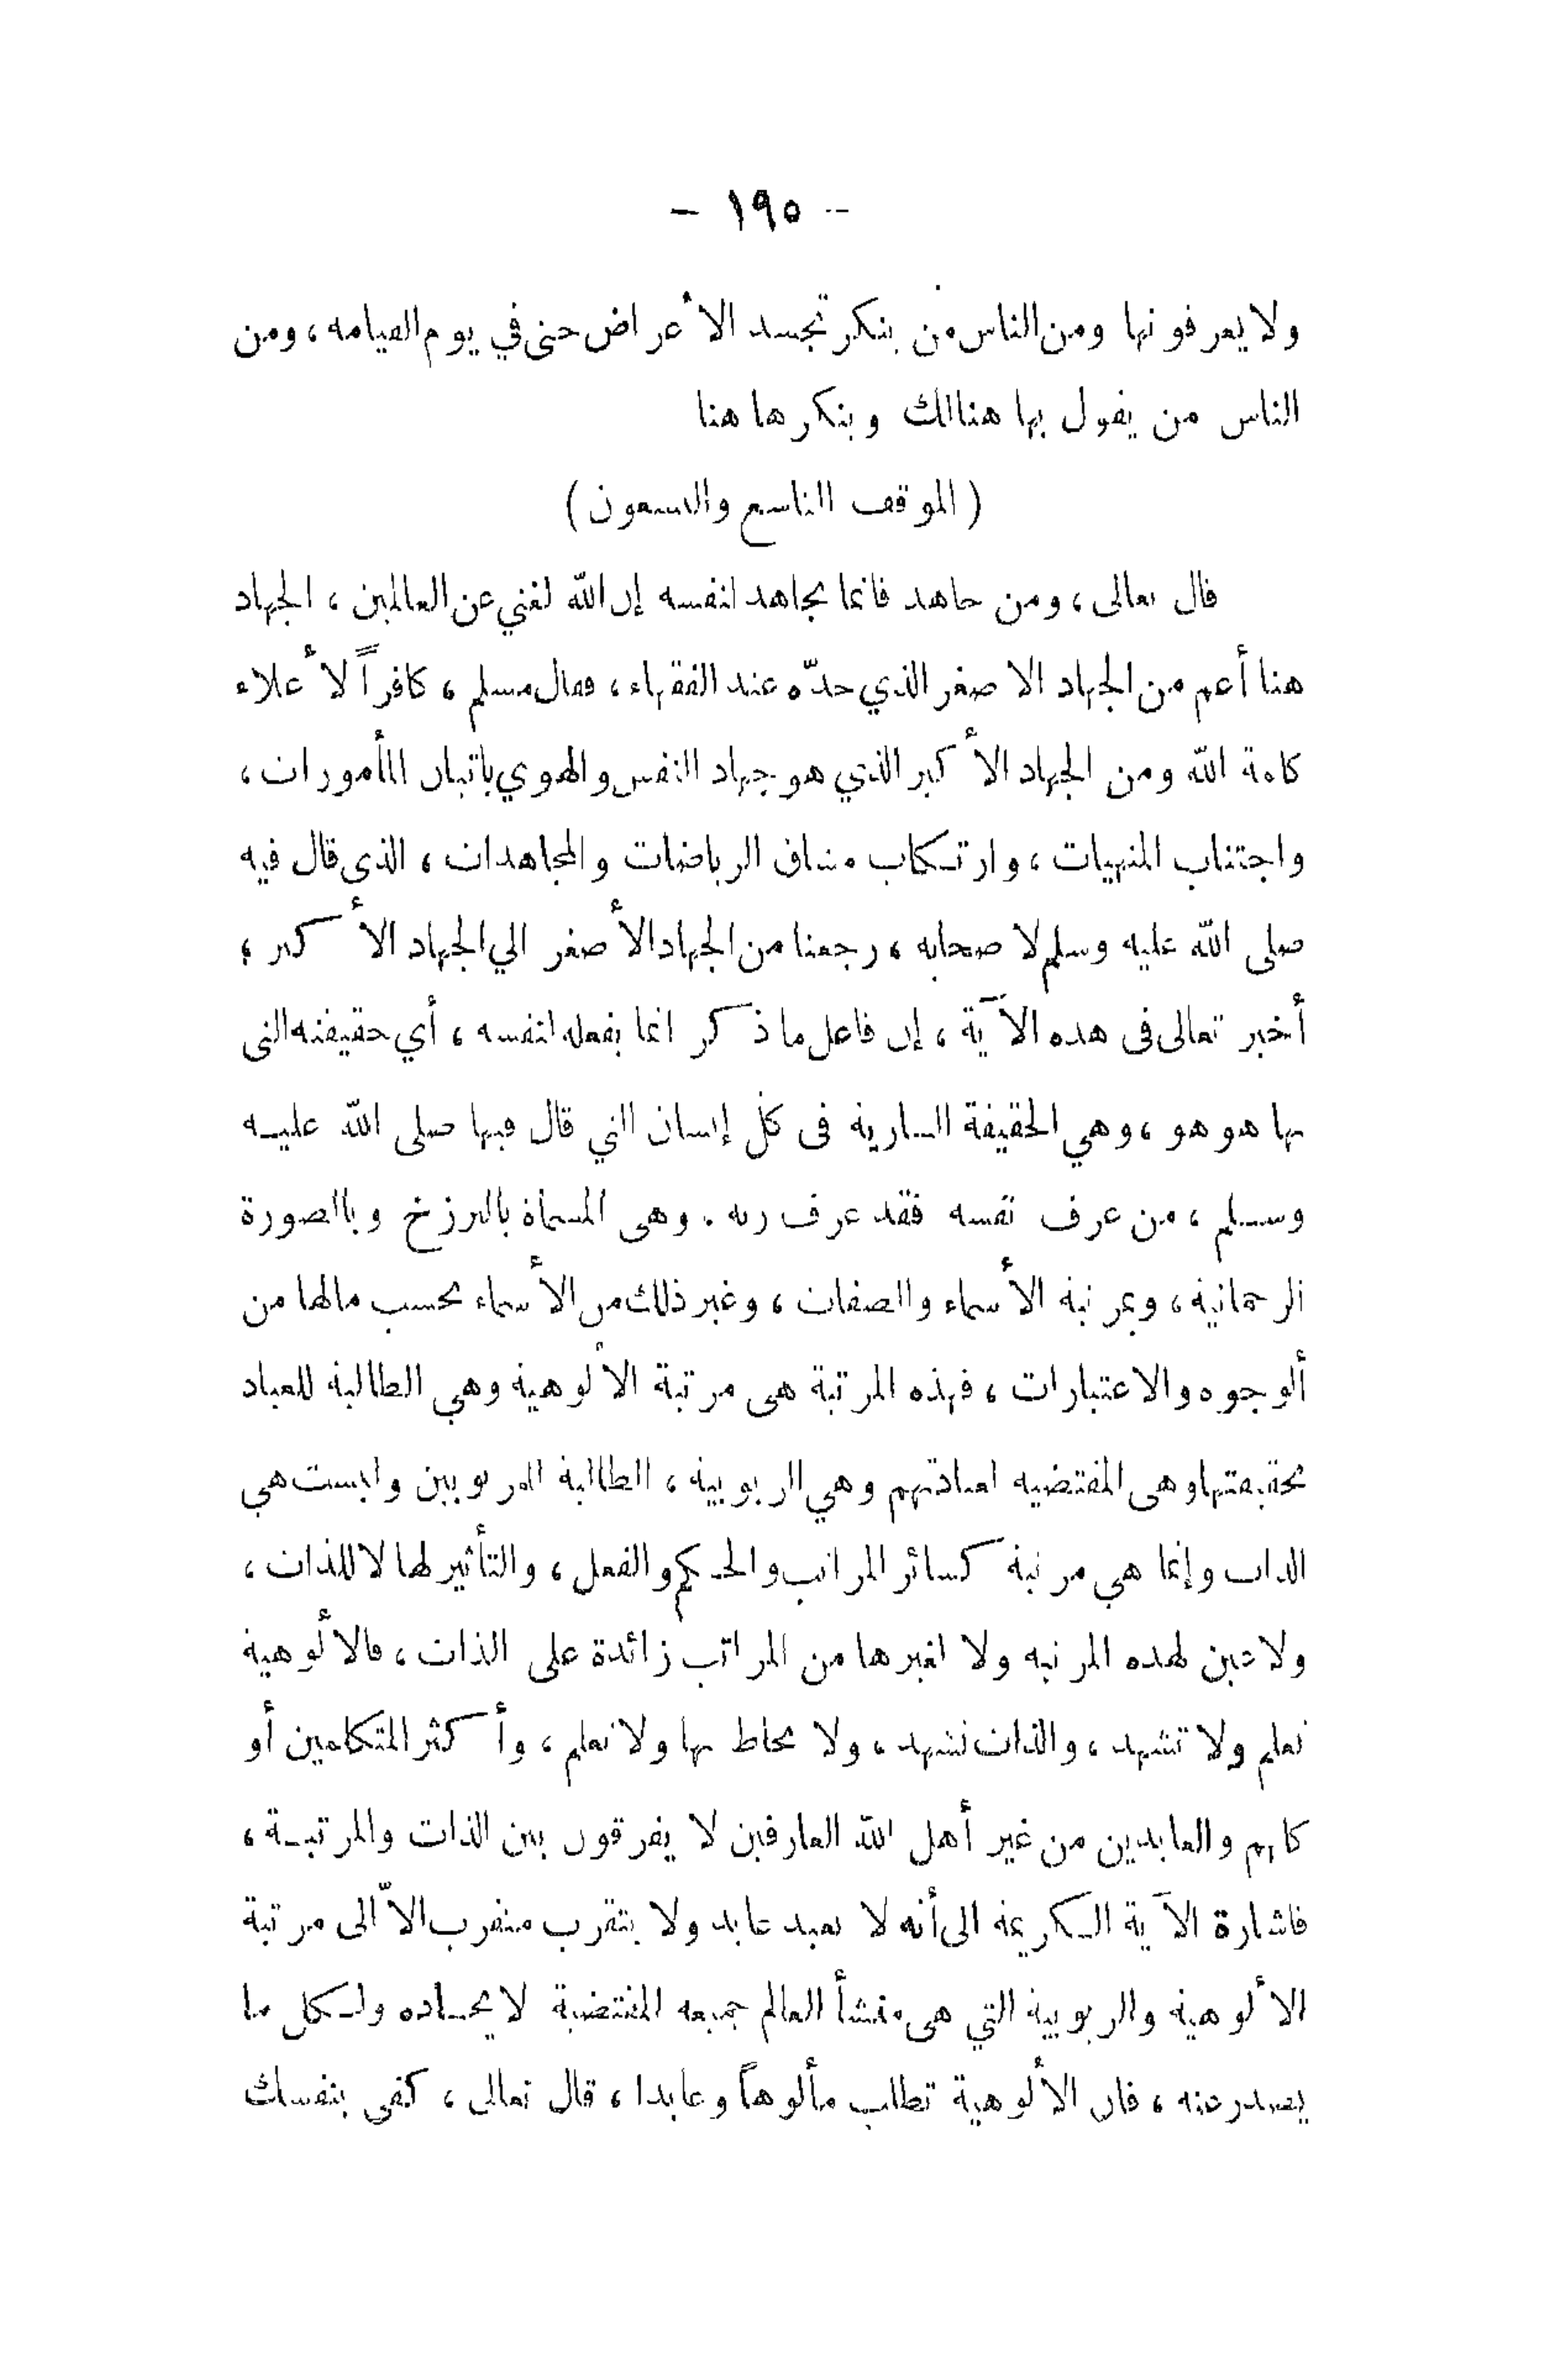 - ١٩٥ -
ولا يعرفونها ومن الناس من ينكر تجسد الأعراض حتى في يوم القيامه، ومن
الناس من يقول بها هنالك وينكرها هنا
(الموقف التاسع والتسعون)
قال تعالى، ومن جاهد فانما يجاهد لنفسه إن الله لغني عن العالمين، الجهاد
هنا أعم من الجهاد الاصغر الذي حدّه عند الفقهاء، قتال مسلم، كافراً لأعلاء
كلمة الله ومن الجهاد الأكبر الذي هو جهاد النفس والهوي باتيان المأمورات،
واجتناب المنهيات، وارتكاب مشاق الرياضات والمجاهدات، الذى قال فيه
صلى الله عليه وسلم لاصحابه، رجعنا من الجهاد الأصغر الي الجهاد الأكبر،
أخبر تعالى فى هذه الآية، إن فاعل ما ذكر انما يفعله لنفسه، أي حقيقته التى
بها هو هو، وهي الحقيقة السارية فى كل إنسان التي قال فيها صلى الله عليه
وسلم، من عرف نفسه فقد عرف ربه. وهى المسماة بالبرزخ وبالصورة
الرحمانية، وبمرتبة الأسماء والصفات، وغير ذلك من الأسماء بحسب مالها من
ألوجوه والاعتبارات، فهذه المرتبة هى مرتبة الألوهية وهي الطالبة للعباد
بحقيقتها وهى المقتضيه لعبادتهم وهي الربوبية، الطالبة المربوبين وليست هي
الذات وإنما هي مرتبة كسائر المراتب والحكم والفعل، والتأثير لها لا للذات،
ولا عين لهذه المرتبه ولا لغيرها من المراتب زائدة على الذات، فالألوهية
تعلم ولا تشهد، والذات تشهد، ولا يحاط بها ولا تعلم، وأكثر المتكلمين أو
كلهم والعابدين من غير أهل الله العارفين لا يفرقون بين الذات والمرتبة،
فاشارة الآية الكريمة الى أنه لا يعبد عابد ولا يتقرب متقرب الاّ الى مرتبة
الألوهية والربوبية التي هى منشأ العالم جميعه المقتضية لايجاده ولكل ما
يصدر عنه، فان الألوهية تطلب مألوهاً وعابدا، قال تعالى، كفى بنفسك